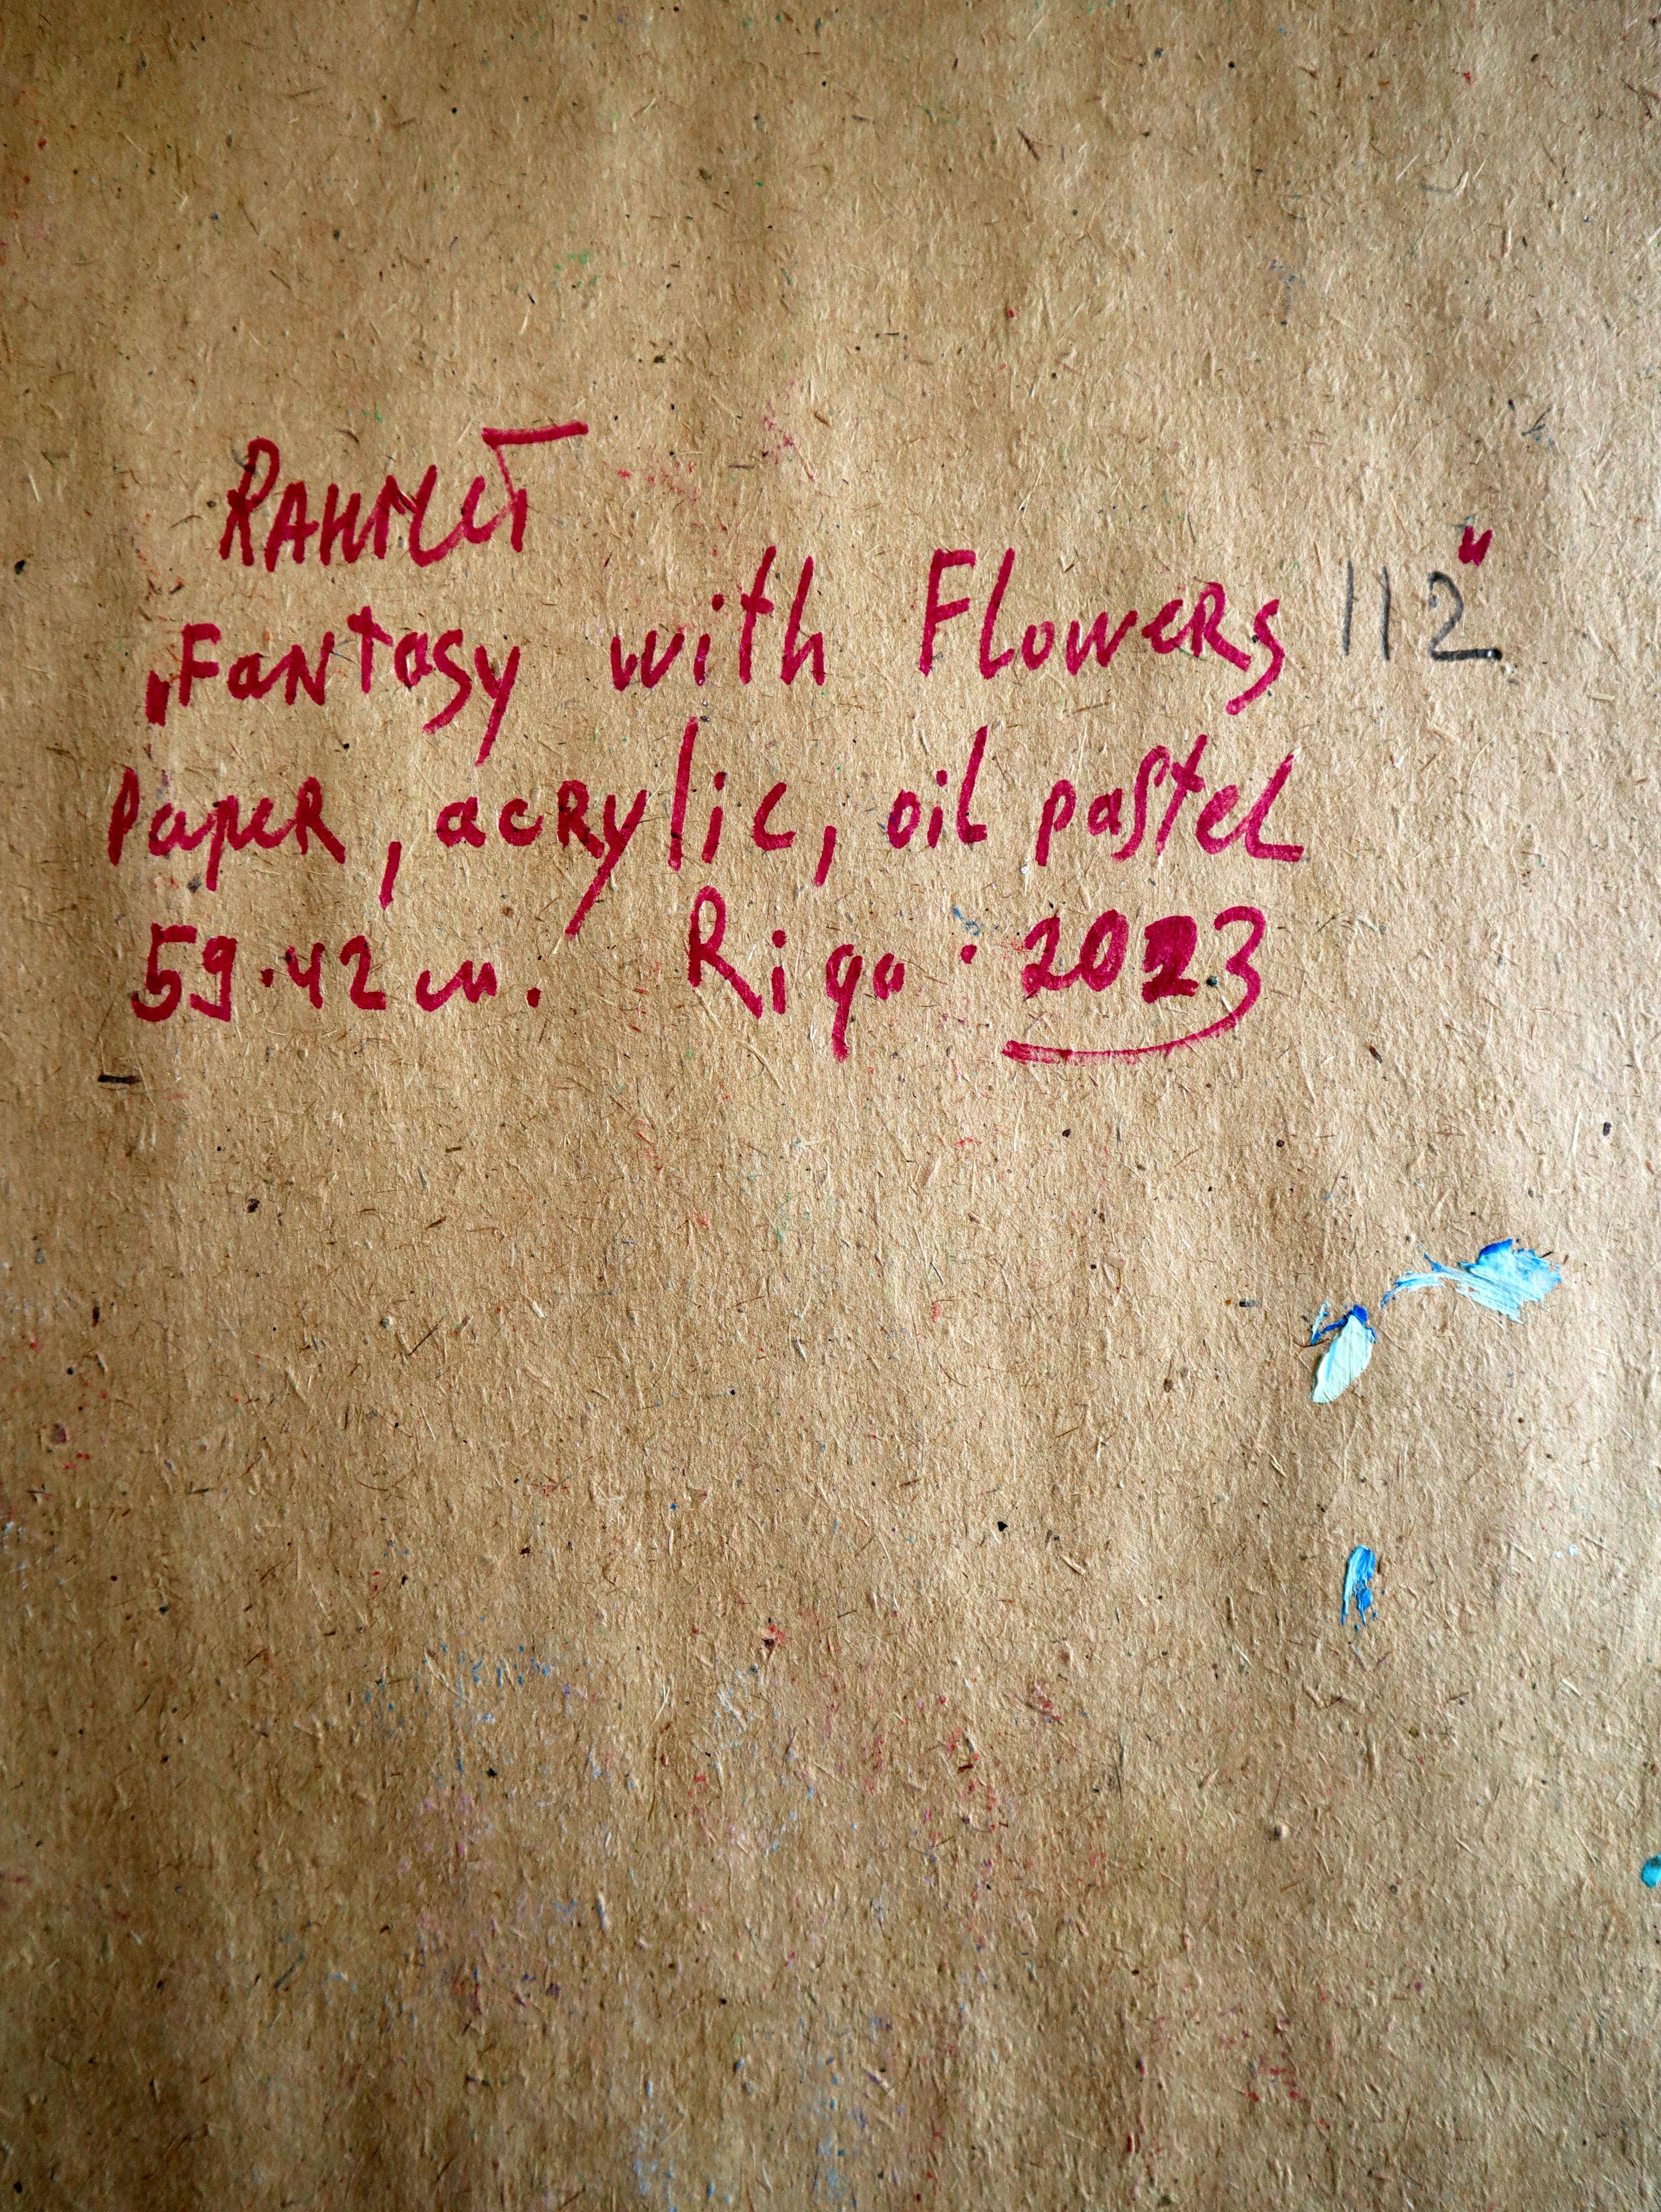 RAHMET
„Fantasy with Flowers 112"
Paper, acrylic, oil pastel
59.42 cm. Riga. 2023